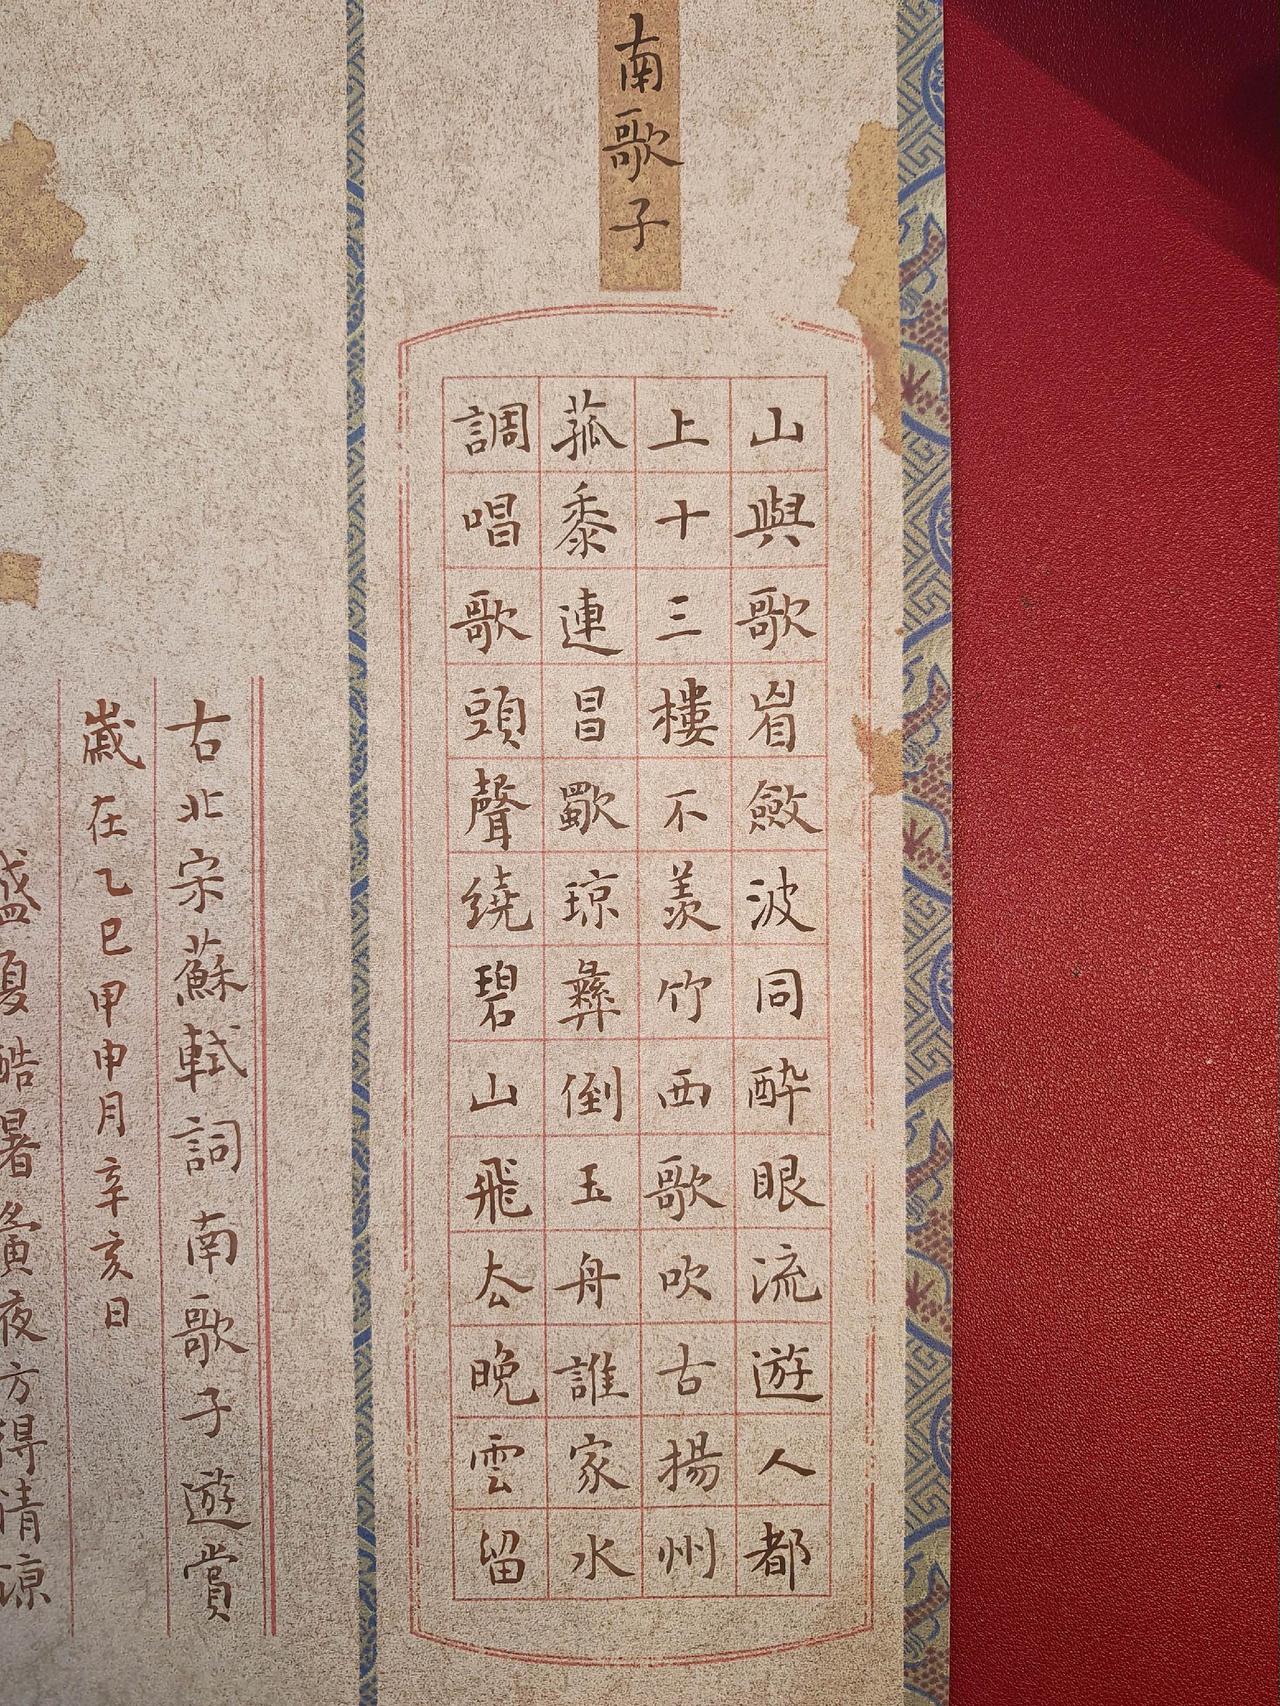 南歌子
山與歌眉斂波同酔眼流遊人都
上十三樓不羨竹西歌吹古揚州
菰黍連昌歜琼彝倒玉舟誰家水
調唱歌頭聲繞碧山飛厺晚雲留
古北宋蘇軾詞南歌子遊賞
歲在乙巳甲申月辛亥日
盛夏酷暑夤夜方得清涼